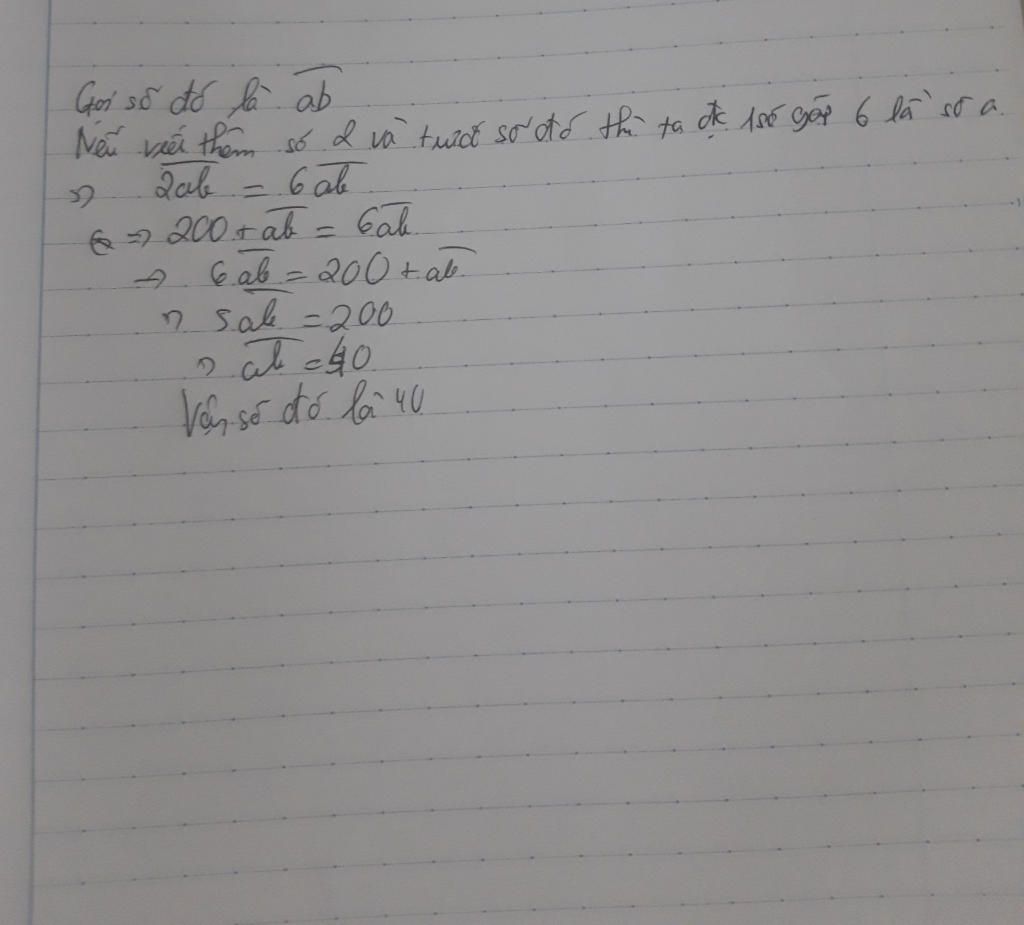 Gọi số đó là ab
Nếu viết thêm số 2 và trước số đó thì ta đc 1 số gấp 6 lần số a.
=> 2ab = 6ab
=> 200 + ab = 6ab
=> 6ab = 200 + ab
=> 5ab = 200
=> ab = 40
Vậy số đó là 40